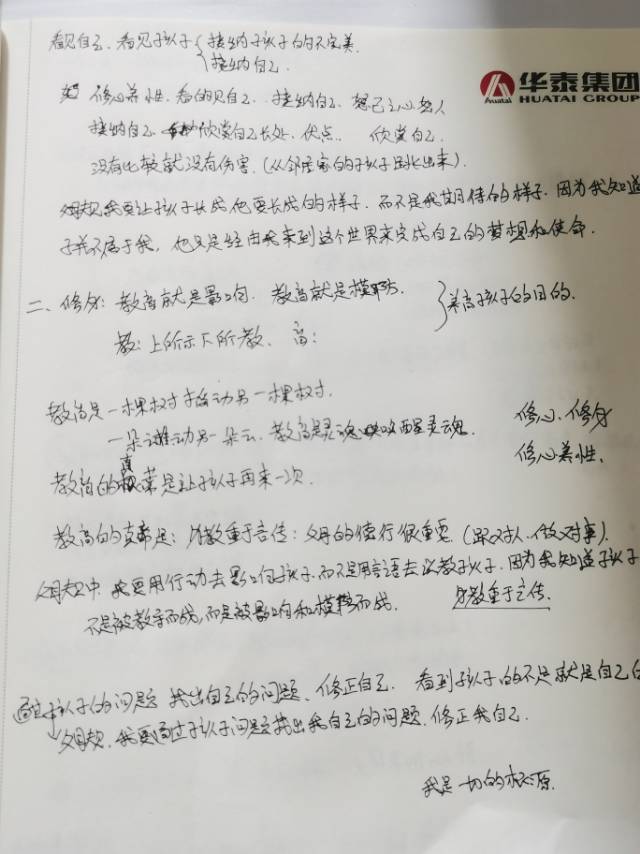 华泰集团
Huatai HUATAI GROUP
看见自己、看见孩子{接纳孩子的不完美.
接纳自己.
修心养性. 看的见自己. 接纳自己. 恕己之心恕人
接纳自己. 欣赏自己长处、优点.. 欣赏自己.
没有比较就没有伤害. (从邻居家的孩子走出来).
父母规我要让孩子长成他要长成的样子. 而不是我期待的样子. 因为我知道
子并不属于我, 他只是经由我来到这个世界来完成自己的梦想和使命.
二、修身: 教育就是影响. 教育就是模仿. }养育孩子的目的.
教: 上所示下所教、育:
教育是一棵树才摇动另一棵树.
一朵云推动另一朵云. 教育是灵魂唤醒灵魂. 修心、修身
教育的真是让孩子再来一次. 修心养性.
教育的真谛是: 身教重于言传: 父母的德行很重要. (跟对人、做对事).
父母规中. 我要用行动去影响孩子. 而不是用言语去说教孩子. 因为我知道孩子
不是被教导而成, 而是被影响和模仿而成. 身教重于言传.
通过孩子的问题 找出自己的问题、修正自己. 看到孩子的不足就是自己的
父母规. 我要通过孩子问题找出我自己的问题. 修正我自己.
我是一切的根源.